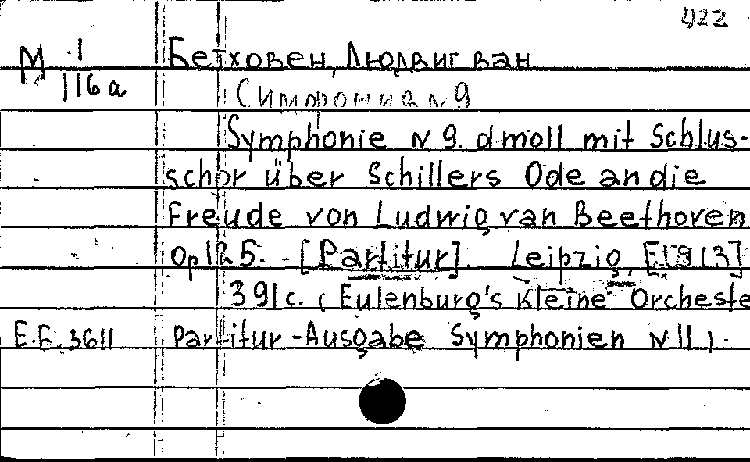 422
М 1 Бетховен, Людвиг ван
116 а (Симфония N 9
Symphonie N 9. d moll mit Schlus-
schor über Schillers Ode an die
Freude von Ludwig van Beethoven
Op 125. [Partitur]. Leipzig, E[19[3]
391 c. (Eulenburg's kleine Orcheste
E.E. 3611 Partitur-Ausgabe Symphonien N 11).